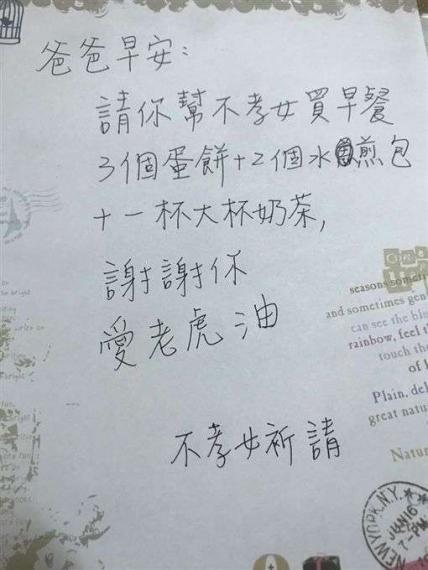 爸爸早安：
請你幫不孝女買早餐
3個蛋餅+2個水煎包
+一杯大杯奶茶,
謝謝你
愛老虎油
不孝女祈請
seasons
and sometimes gen
can see the blu
rainbow, feel th
touch the
of l
Plain, del
great natu
Natur
NEW YORK, N.Y.
JUN 16
7-PM